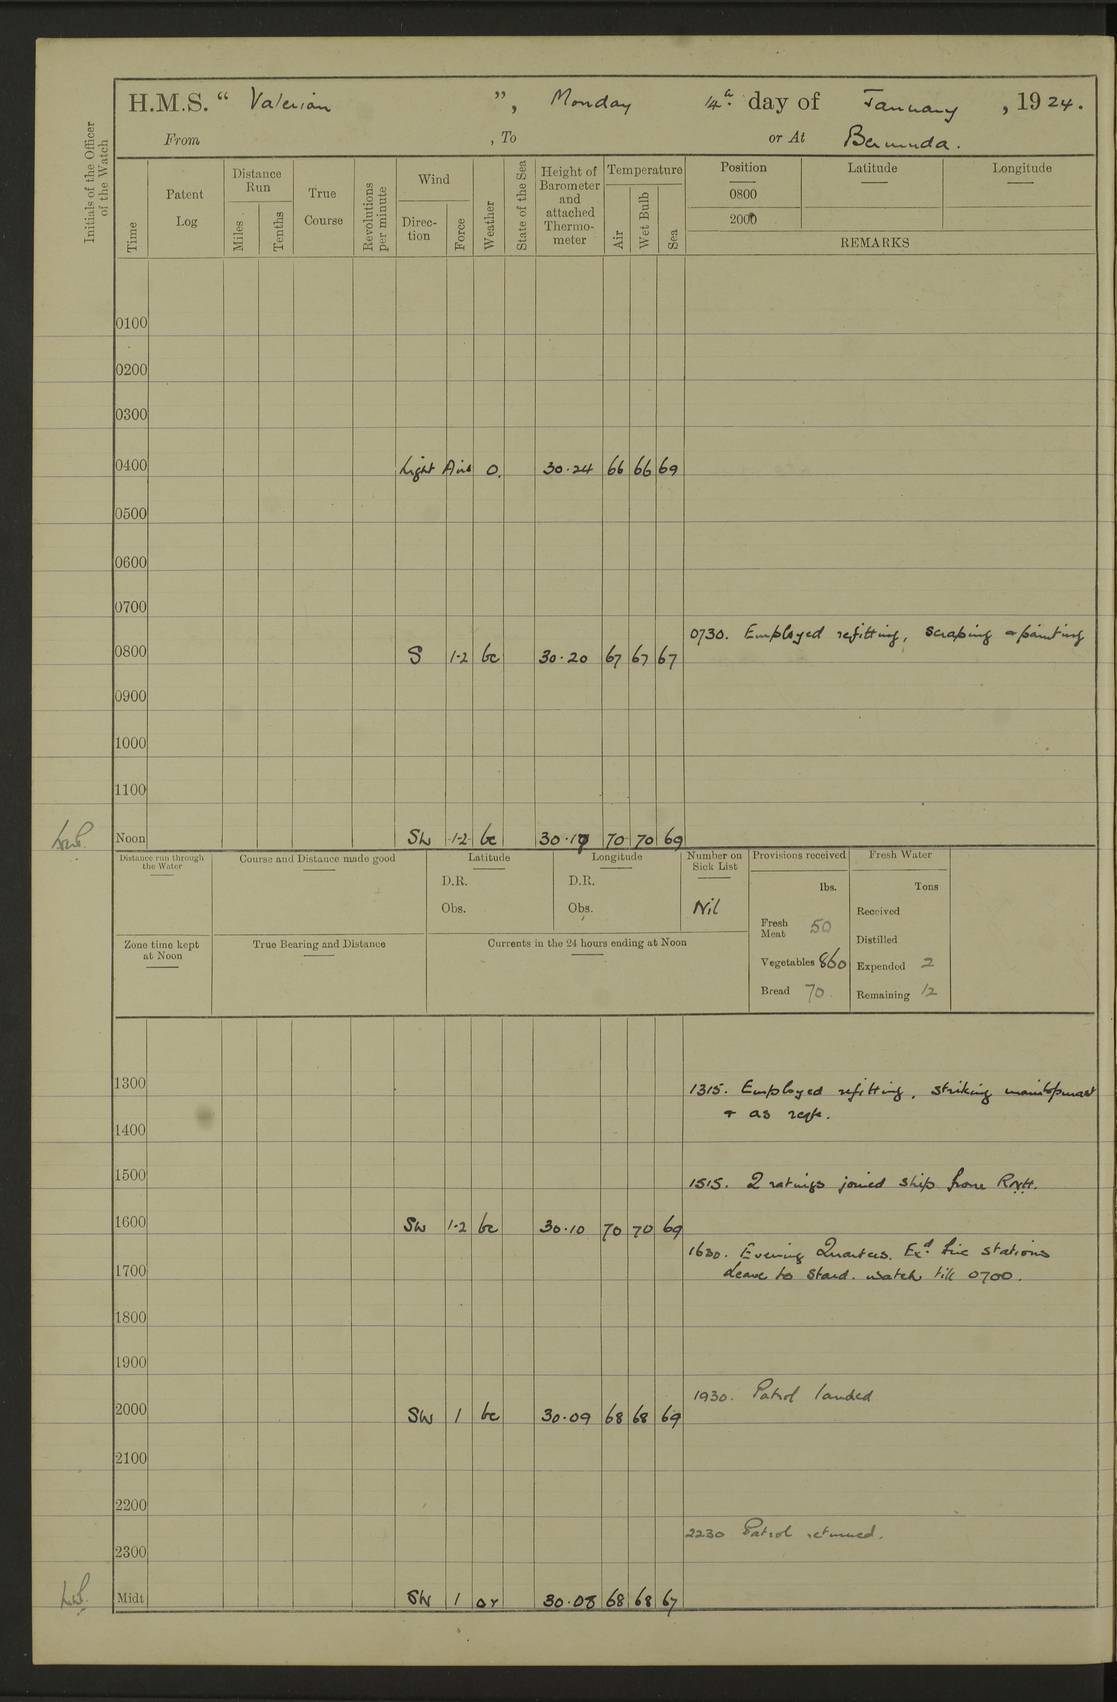 H.M.S. “ Valerian ”, Monday 14th day of January, 1924.
From , To or At Bermuda.
Initials of the Officer of the Watch
Time
Patent Log
Distance Run
Miles
Tenths
True Course
Revolutions per minute
Wind
Direction
Force
Weather
State of the Sea
Height of Barometer and attached Thermometer
Temperature
Air
Wet Bulb
Sea
Position Latitude Longitude
0800
2000
REMARKS
0100
0200
0300
0400 Light Airs o. 30·24 66 66 69
0500
0600
0700
0730. Employed refitting, scraping & painting
0800 S 1-2 bc 30·20 67 67 67
0900
1000
1100
Noon SW 1-2 bc 30·19 70 70 69
Distance run through the Water
Course and Distance made good
Latitude
D.R.
Obs.
Longitude
D.R.
Obs.
Number on Sick List
Nil
Provisions received
lbs.
Fresh Meat 50
Vegetables 860
Bread 70
Fresh Water
Tons
Received
Distilled
Expended 2
Remaining 12
Zone time kept at Noon
True Bearing and Distance
Currents in the 24 hours ending at Noon
1300
1315. Employed refitting, striking maintopmast
& as reqte.
1400
1500
1515. 2 ratings joined ship from RNH.
1600 SW 1-2 bc 30·10 70 70 69
1630. Evening Quarters. Exd. fire stations
Leave to Stard. watch till 0700.
1700
1800
1900
1930. Patrol landed
2000 SW 1 bc 30·09 68 68 69
2100
2200
2230 Patrol returned.
2300
Midt SW 1 or 30·08 68 68 67